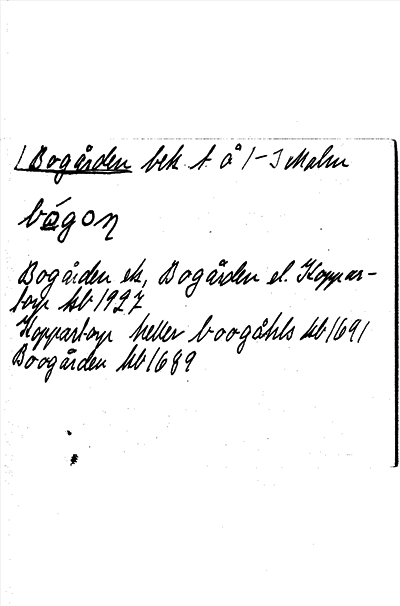 1 Bogården bek t å 1-3 Malm
bógon
Bogården ek, Bogården el. Koppar-
torp kb 1927
Koppartorp heller boogåhls kb 1691
Boogården kb 1689